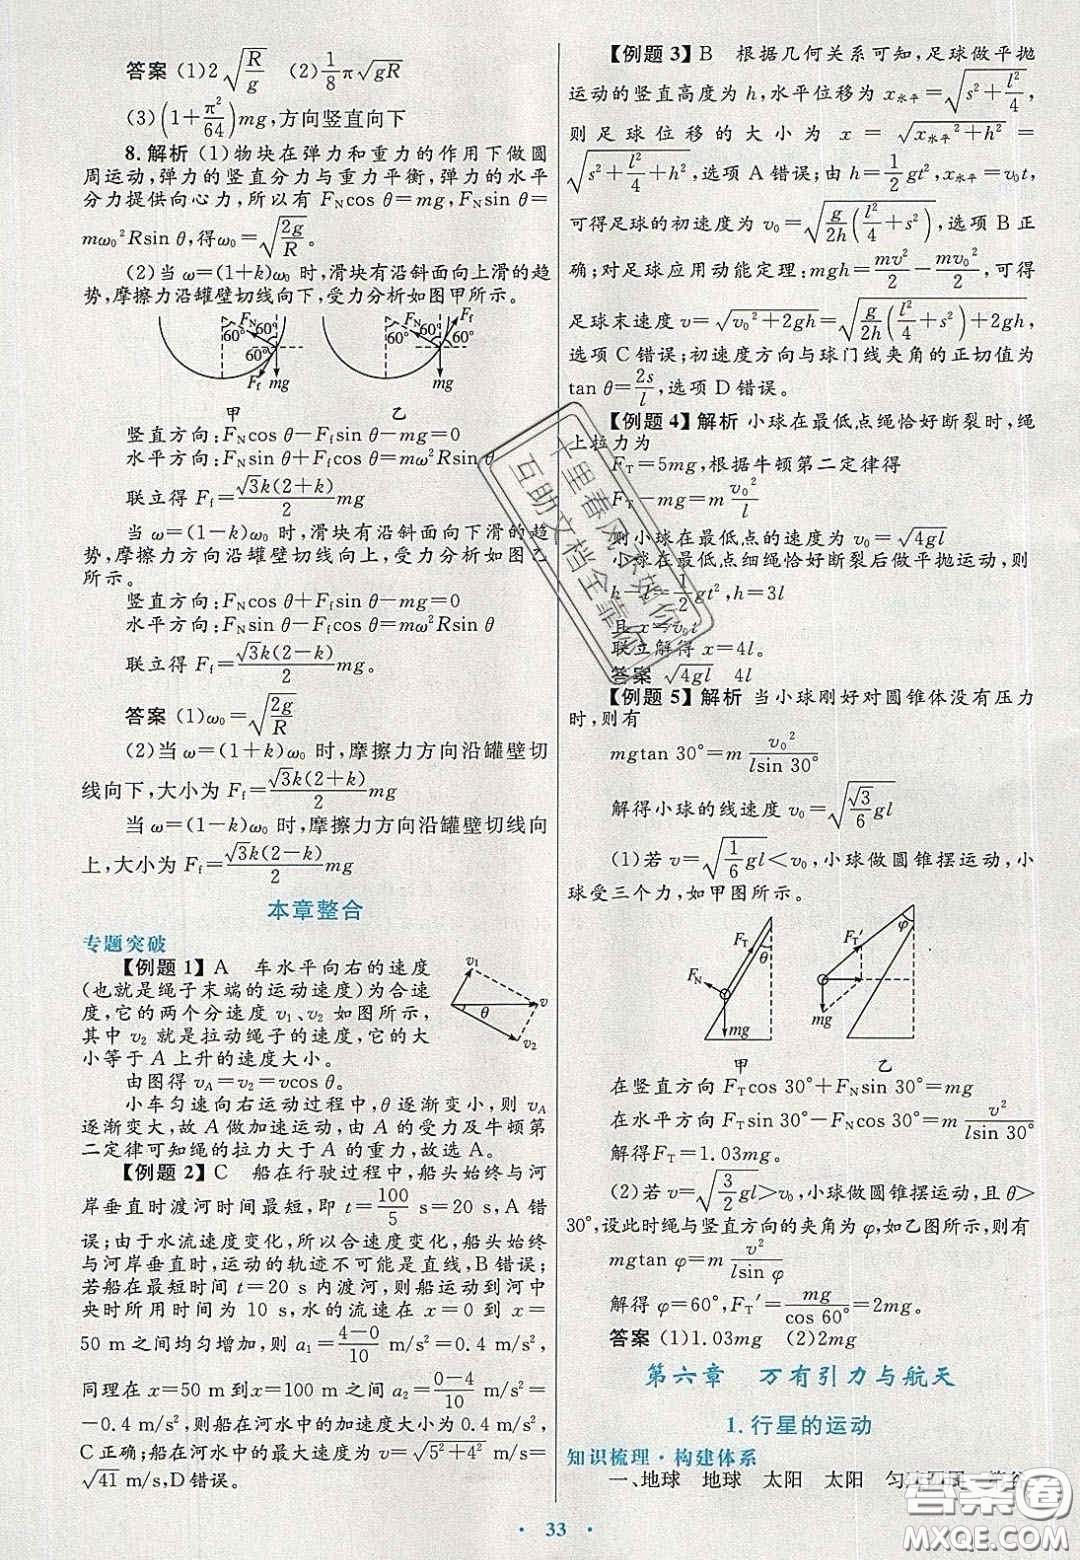 答案 (1)2√(R/g) (2)1/8 π√(gR)
(3)(1+π²/64)mg,方向竖直向下
8.解析 (1)物块在弹力和重力的作用下做圆
周运动,弹力的竖直分力与重力平衡,弹力的水平
分力提供向心力,所以有 F_N cos θ=mg,F_N sin θ=
mω₀²Rsin θ,得ω₀=√(2g/R)。
(2)当 ω=(1+k)ω₀ 时,滑块有沿斜面向上滑的趋
势,摩擦力沿罐壁切线向下,受力分析如图甲所示。
F_N 60° 60° 60° F_f mg
F_N F_f 60° 60° 60° mg
甲 乙
竖直方向:F_N cos θ-F_f sin θ-mg=0
水平方向:F_N sin θ+F_f cos θ=mω²Rsin θ
联立得 F_f=√3k(2+k)/2 mg
当 ω=(1-k)ω₀ 时,滑块有沿斜面向下滑的趋
势,摩擦力方向沿罐壁切线向上,受力分析如图乙
所示。
竖直方向:F_N cos θ+F_f sin θ-mg=0
水平方向:F_N sin θ-F_f cos θ=mω²Rsin θ
联立得 F_f=√3k(2-k)/2 mg。
答案 (1)ω₀=√(2g/R)
(2)当 ω=(1+k)ω₀ 时,摩擦力方向沿罐壁切
线向下,大小为 F_f=√3k(2+k)/2 mg
当 ω=(1-k)ω₀ 时,摩擦力方向沿罐壁切线向
上,大小为 F_f=√3k(2-k)/2 mg
本章整合
专题突破
【例题 1】 A 车水平向右的速度
(也就是绳子末端的运动速度)为合速
度,它的两个分速度 v₁、v₂ 如图所示,
其中 v₂ 就是拉动绳子的速度,它的大
小等于 A 上升的速度大小。
v₁ v θ v₂
由图得 v_A=v₂=vcos θ。
小车匀速向右运动过程中,θ 逐渐变小,则 v_A
逐渐变大,故 A 做加速运动,由 A 的受力及牛顿第
二定律可知绳的拉力大于 A 的重力,故选 A。
【例题 2】 C 船在行驶过程中,船头始终与河
岸垂直时渡河时间最短,即 t=100/5 s=20 s,A 错
误;由于水流速度变化,所以合速度变化,船头始终
与河岸垂直时,运动的轨迹不可能是直线,B 错误;
若船在最短时间 t=20 s 内渡河,则船运动到河中
央时所用时间为 10 s,水的流速在 x=0 到 x=
50 m 之间均匀增加,则 a₁=(4-0)/10 m/s²=0.4 m/s²,
同理在 x=50 m 到 x=100 m 之间 a₂=(0-4)/10 m/s²=
-0.4 m/s²,则船在河水中的加速度大小为 0.4 m/s²,
C 正确;船在河水中的最大速度为 v=√(5²+4²) m/s=
√41 m/s,D 错误。
【例题 3】 B 根据几何关系可知,足球做平抛
运动的竖直高度为 h,水平位移为 x_水平=√(s²+l²/4),
则足球位移的大小为 x=√(x_水平²+h²)=
√(s²+l²/4+h²),选项 A 错误;由 h=1/2 gt²,x_水平=v₀t,
可得足球的初速度为 v₀=√(g/2h(l²/4+s²)),选项 B 正
确;对足球应用动能定理:mgh=mv²/2-mv₀²/2,可得
足球末速度 v=√(v₀²+2gh)=√(g/2h(l²/4+s²)+2gh),
选项 C 错误;初速度方向与球门线夹角的正切值为
tan θ=2s/l,选项 D 错误。
【例题 4】 解析 小球在最低点绳恰好断裂时,绳
上拉力为
F_T=5mg,根据牛顿第二定律得
F_T-mg=m v₀²/l
则小球在最低点的速度为 v₀=√(4gl)
小球在最低点细绳恰好断裂后做平抛运动,则
h-l=1/2 gt²,h=3l
且 x=v₀t
联立解得 x=4l。
答案 √(4gl) 4l
【例题 5】 解析 当小球刚好对圆锥体没有压力
时,则有
mgtan 30°=m v₀²/(lsin 30°)
解得小球的线速度 v₀=√(√3/6 gl)
(1)若 v=√(1/6 gl)<v₀,小球做圆锥摆运动,小
球受三个力,如甲图所示。
F_T θ F_N mg
F_T′ φ mg
甲 乙
在竖直方向 F_T cos 30°+F_N sin 30°=mg
在水平方向 F_T sin 30°-F_N cos 30°=m v²/(lsin 30°)
解得 F_T=1.03mg
(2)若 v=√(3/2 gl)>v₀,小球做圆锥摆运动,且 θ>
30°,设此时绳与竖直方向的夹角为 φ,如乙图所示,则有
mgtan φ=m v²/(lsin φ)
解得 φ=60°,F_T′=mg/cos 60°=2mg。
答案 (1)1.03mg (2)2mg
第六章 万有引力与航天
1.行星的运动
知识梳理·构建体系
一、地球 地球 太阳 太阳 匀
· 33 ·
千里春风不如你
互助文档全靠你
答案圈
MXQE.COM